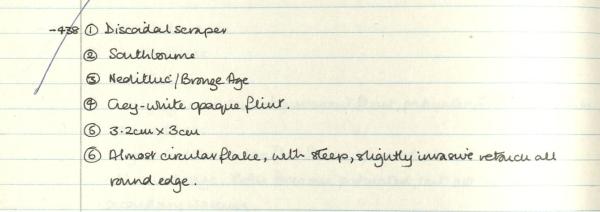 -438 ① Discoidal scraper
② Southbourne
③ Neolithic/Bronze Age
④ Grey-white opaque flint.
⑤ 3.2cm x 3cm
⑥ Almost circular flake, with steep, slightly invasive retouch all
round edge.